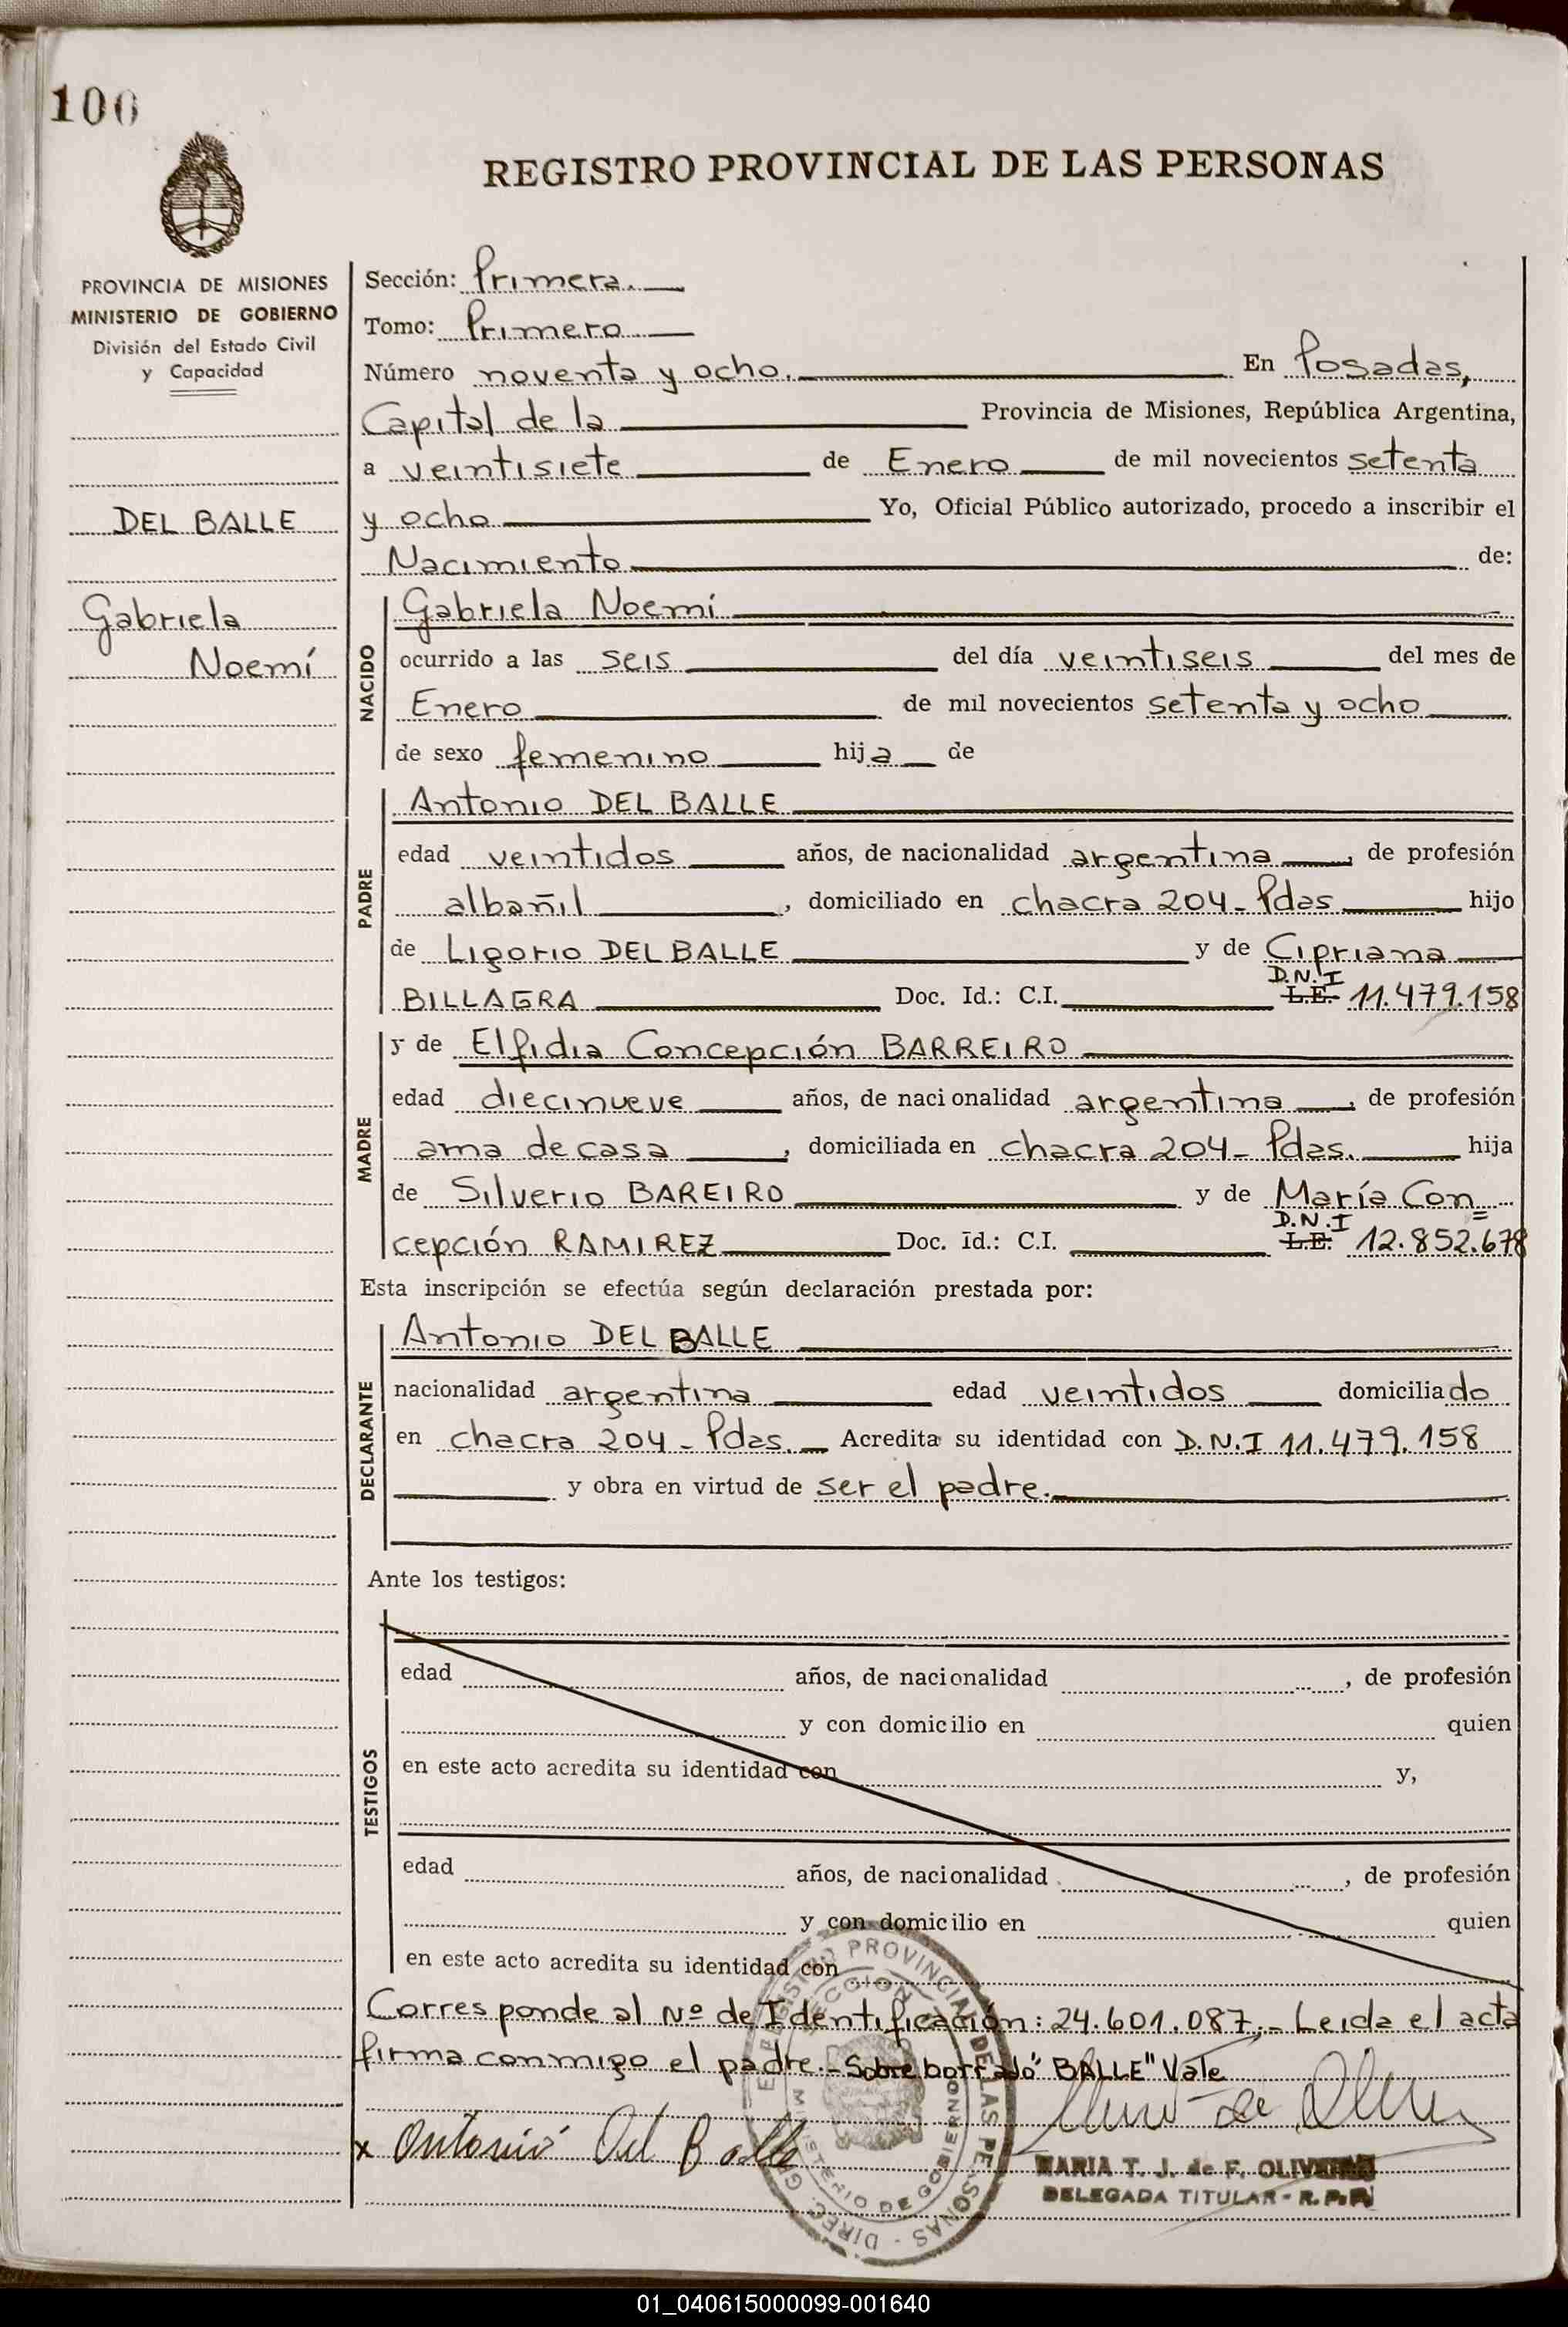 100
REGISTRO PROVINCIAL DE LAS PERSONAS
PROVINCIA DE MISIONES
MINISTERIO DE GOBIERNO
División del Estado Civil
y Capacidad
DEL BALLE
Gabriela
Noemí
Sección: Primera.
Tomo: Primero
Número noventa y ocho. En Posadas,
Capital de la Provincia de Misiones, República Argentina,
a veintisiete de Enero de mil novecientos setenta
y ocho Yo, Oficial Público autorizado, procedo a inscribir el
Nacimiento de:
NACIDO
Gabriela Noemí
ocurrido a las seis del día veintiseis del mes de
Enero de mil novecientos setenta y ocho
de sexo femenino hija de
PADRE
Antonio DEL BALLE
edad veintidos años, de nacionalidad argentina, de profesión
albañil, domiciliado en chacra 204- Pdas hijo
de Ligorio DEL BALLE y de Cipriana
BILLAGRA Doc. Id.: C.I. L.E. D.N.I 11.479.158
MADRE
y de Elfidia Concepción BARREIRO
edad diecinueve años, de nacionalidad argentina, de profesión
ama de casa, domiciliada en chacra 204- Pdas. hija
de Silverio BAREIRO y de María Con=
cepción RAMIREZ Doc. Id.: C.I. L.E. D.N.I 12.852.678
Esta inscripción se efectúa según declaración prestada por:
DECLARANTE
Antonio DEL BALLE
nacionalidad argentina edad veintidos domiciliado
en chacra 204- Pdas. Acredita su identidad con D.N.I 11.479.158
y obra en virtud de ser el padre.
Ante los testigos:
TESTIGOS
edad años, de nacionalidad , de profesión
y con domicilio en quien
en este acto acredita su identidad con y,
edad años, de nacionalidad , de profesión
y con domicilio en quien
en este acto acredita su identidad con
Corresponde al Nº de Identificación: 24.601.087.- Leida el acta
firma conmigo el padre.- Sobre borrado "BALLE" Vale
x Antonio Del Balle
MARIA T. J. de F. OLIVEIRA
DELEGADA TITULAR - R.P.P.
DIREC. GRAL. DEL REGISTRO PROVINCIAL DE LAS PERSONAS
MINISTERIO DE GOBIERNO
01_040615000099-001640